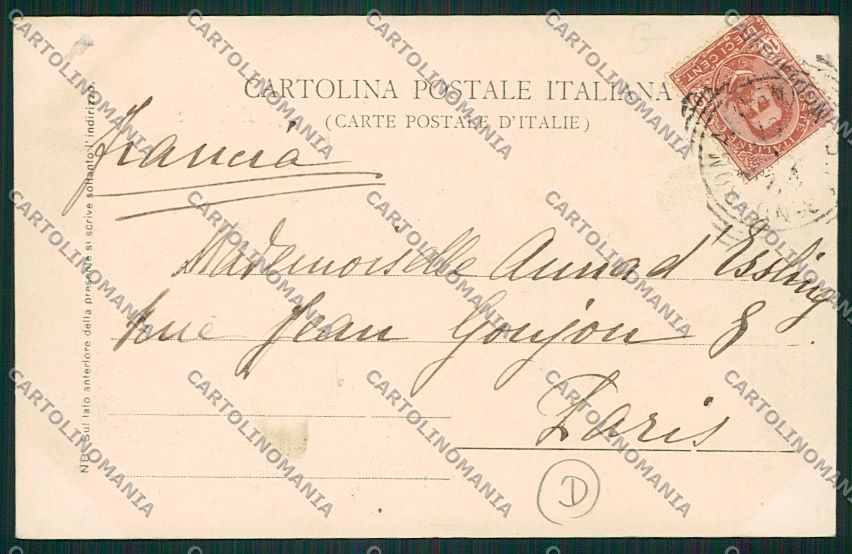 CARTOLINA POSTALE ITALIANA
(CARTE POSTALE D'ITALIE)
Francia
Mademoiselle Anna d'Essling
rue Jean Goujon 8
Paris
NB. Sul lato anteriore della presente si scrive soltanto l'indirizzo.
POSTE ITALIANE
DIECI CENT.
D
CARTOLINOMANIA